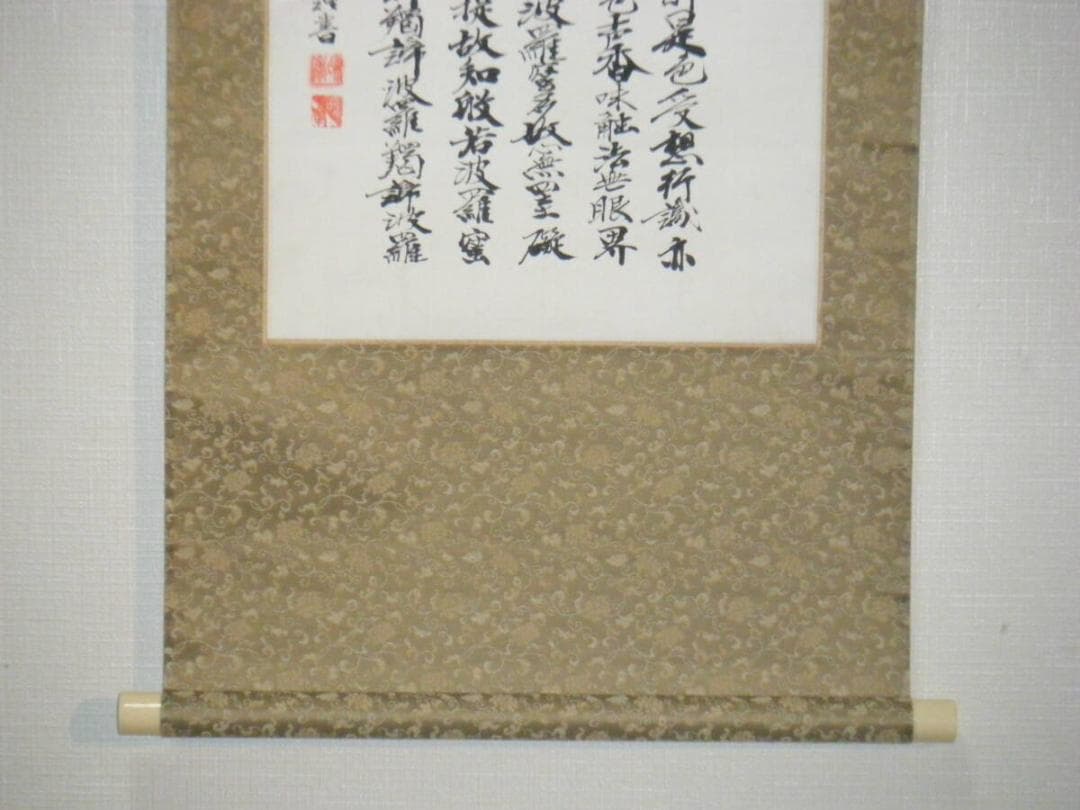 是色受想行識亦
声香味触法無眼界
波羅蜜多故心無罣礙
提故知般若波羅蜜
羯諦波羅羯諦波羅
書